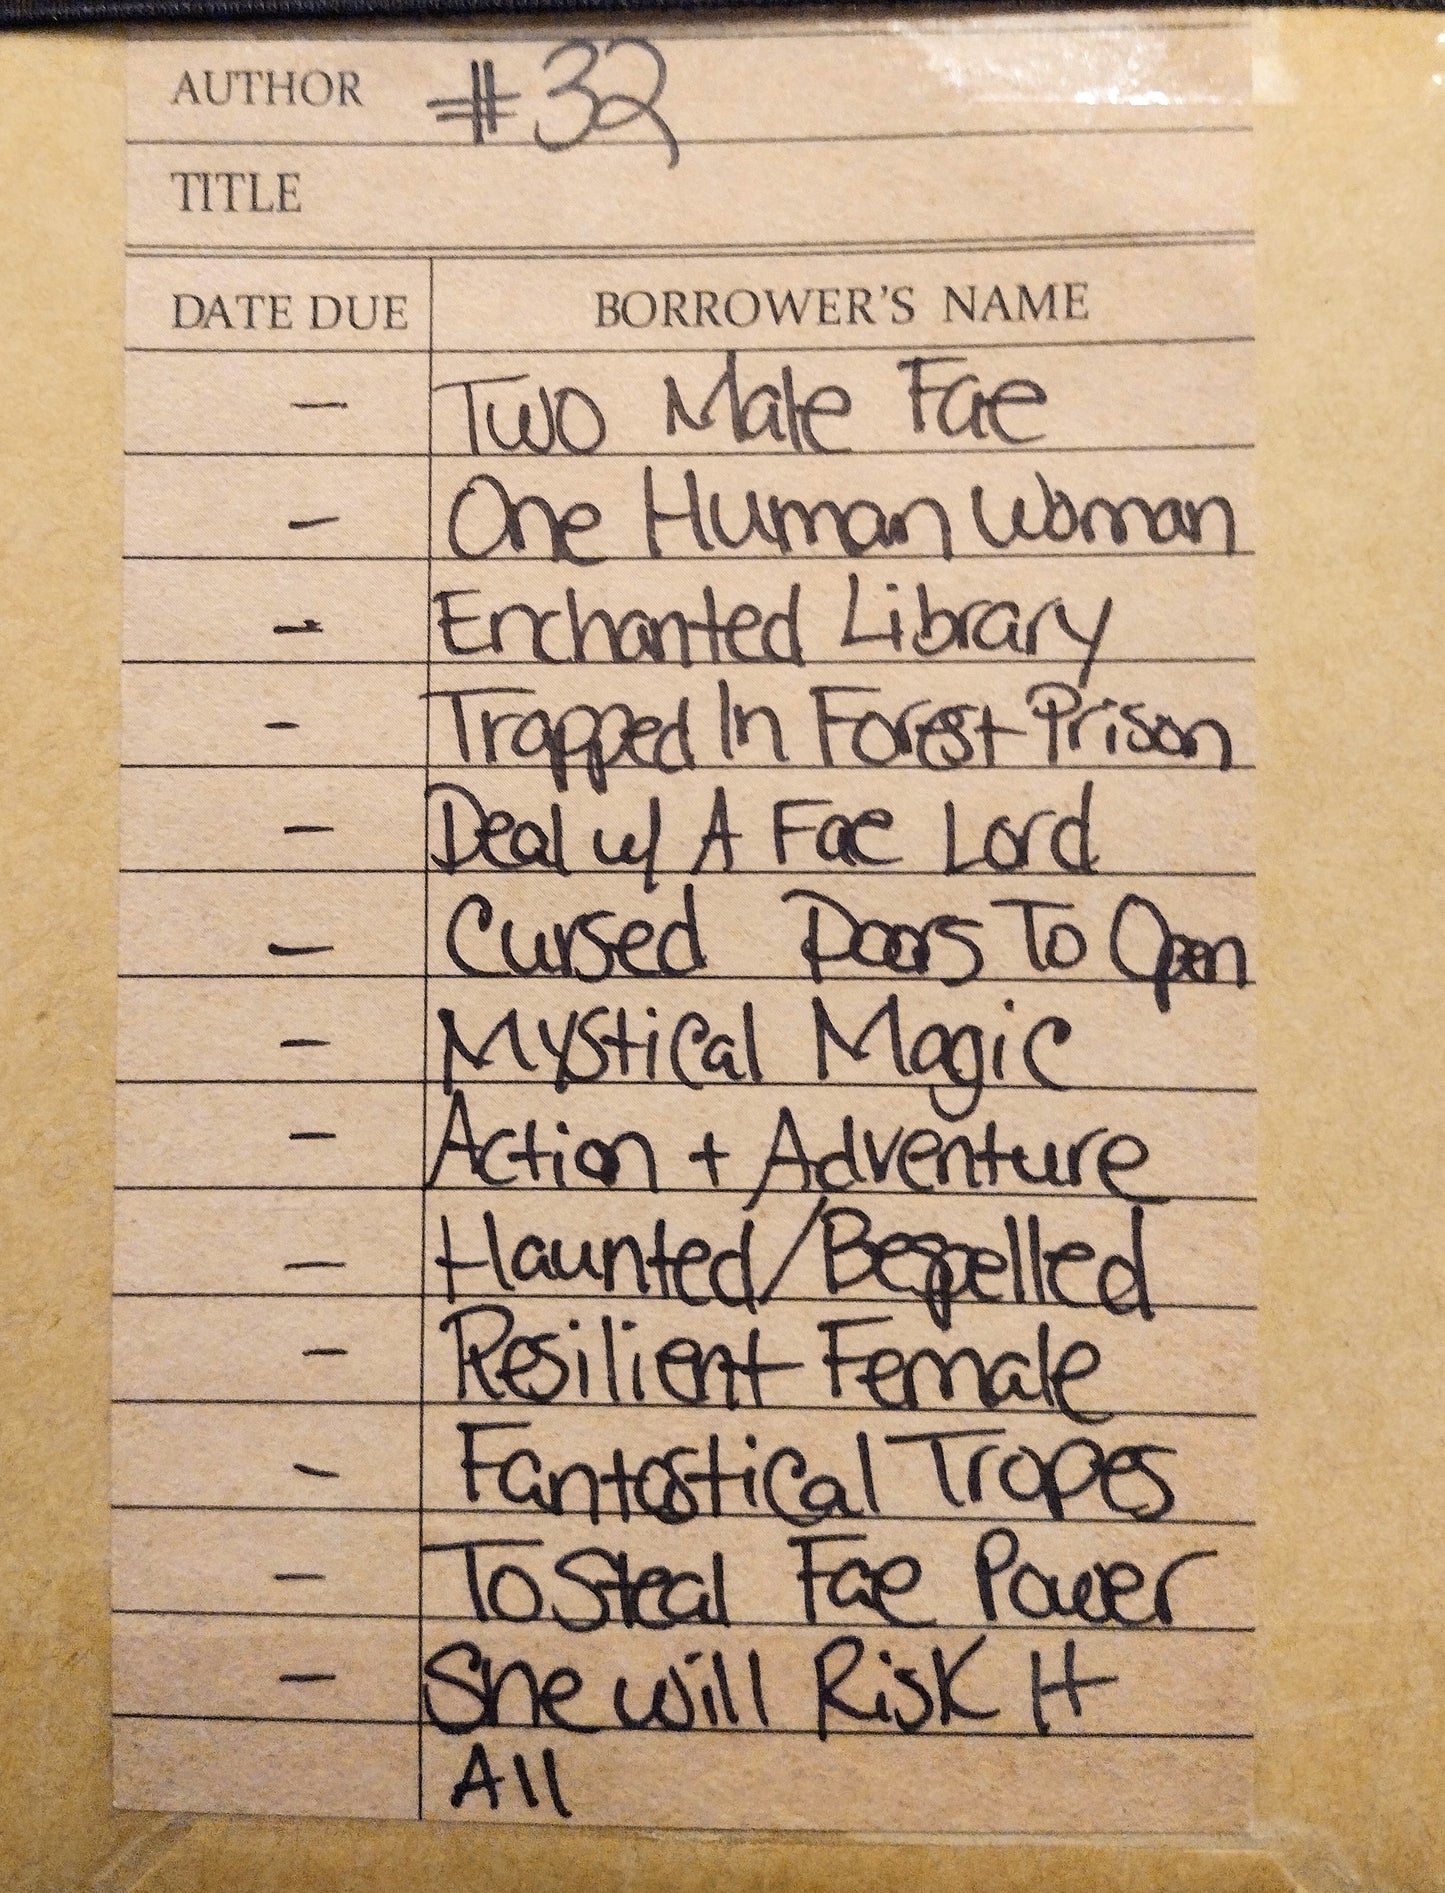 AUTHOR #32
TITLE
DATE DUE BORROWER'S NAME
- Two Male Fae
- One Human Woman
- Enchanted Library
- Trapped In Forest Prison
- Deal w/ A Fae Lord
- Cursed Doors To Open
- Mystical Magic
- Action + Adventure
- Haunted/Bespelled
- Resilient Female
- Fantastical Tropes
- To Steal Fae Power
- She will Risk It
All